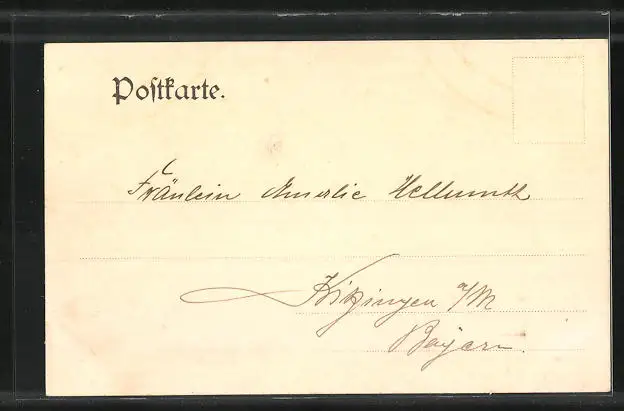 Postkarte.
Fräulein Amerlie Hellmuth
Kitzingen a/M
Bayern.